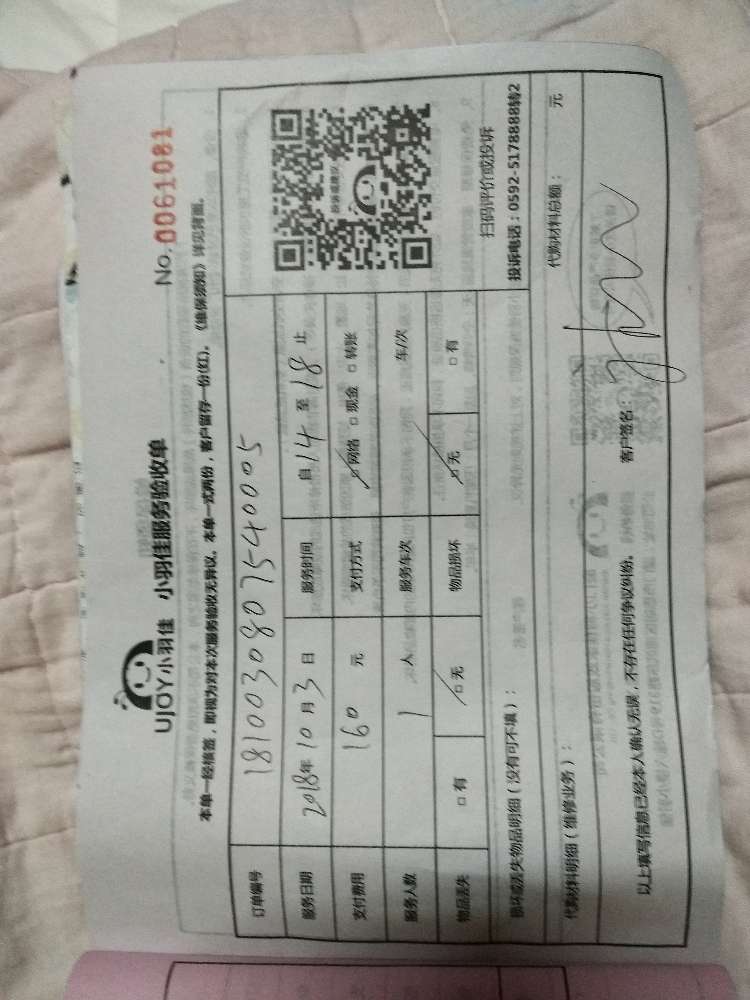 UJOY小羽佳 小羽佳服务验收单 No. 0061081
本单一经核签，即视为对本次服务验收无异议。本单一式两份，客户留存一份(红)。《维保须知》详见背面。
订单编号 181003080754 0005
服务日期 2018年10月3日 服务时间 自14至18止
支付费用 160 元 支付方式 ☑网络 □现金 □转账
服务人数 1 人 服务车次 车/次
物品丢失 □有 ☑无 物品损坏 ☑无 □有
投诉或建议
扫码评价或投诉
投诉电话：0592-5178888转2
损坏或丢失物品明细（没有可不填）：
代购材料明细（维修业务）： 代购材料总额： 元
以上填写信息已经本人确认无误，不存在任何争议纠纷。 客户签名：